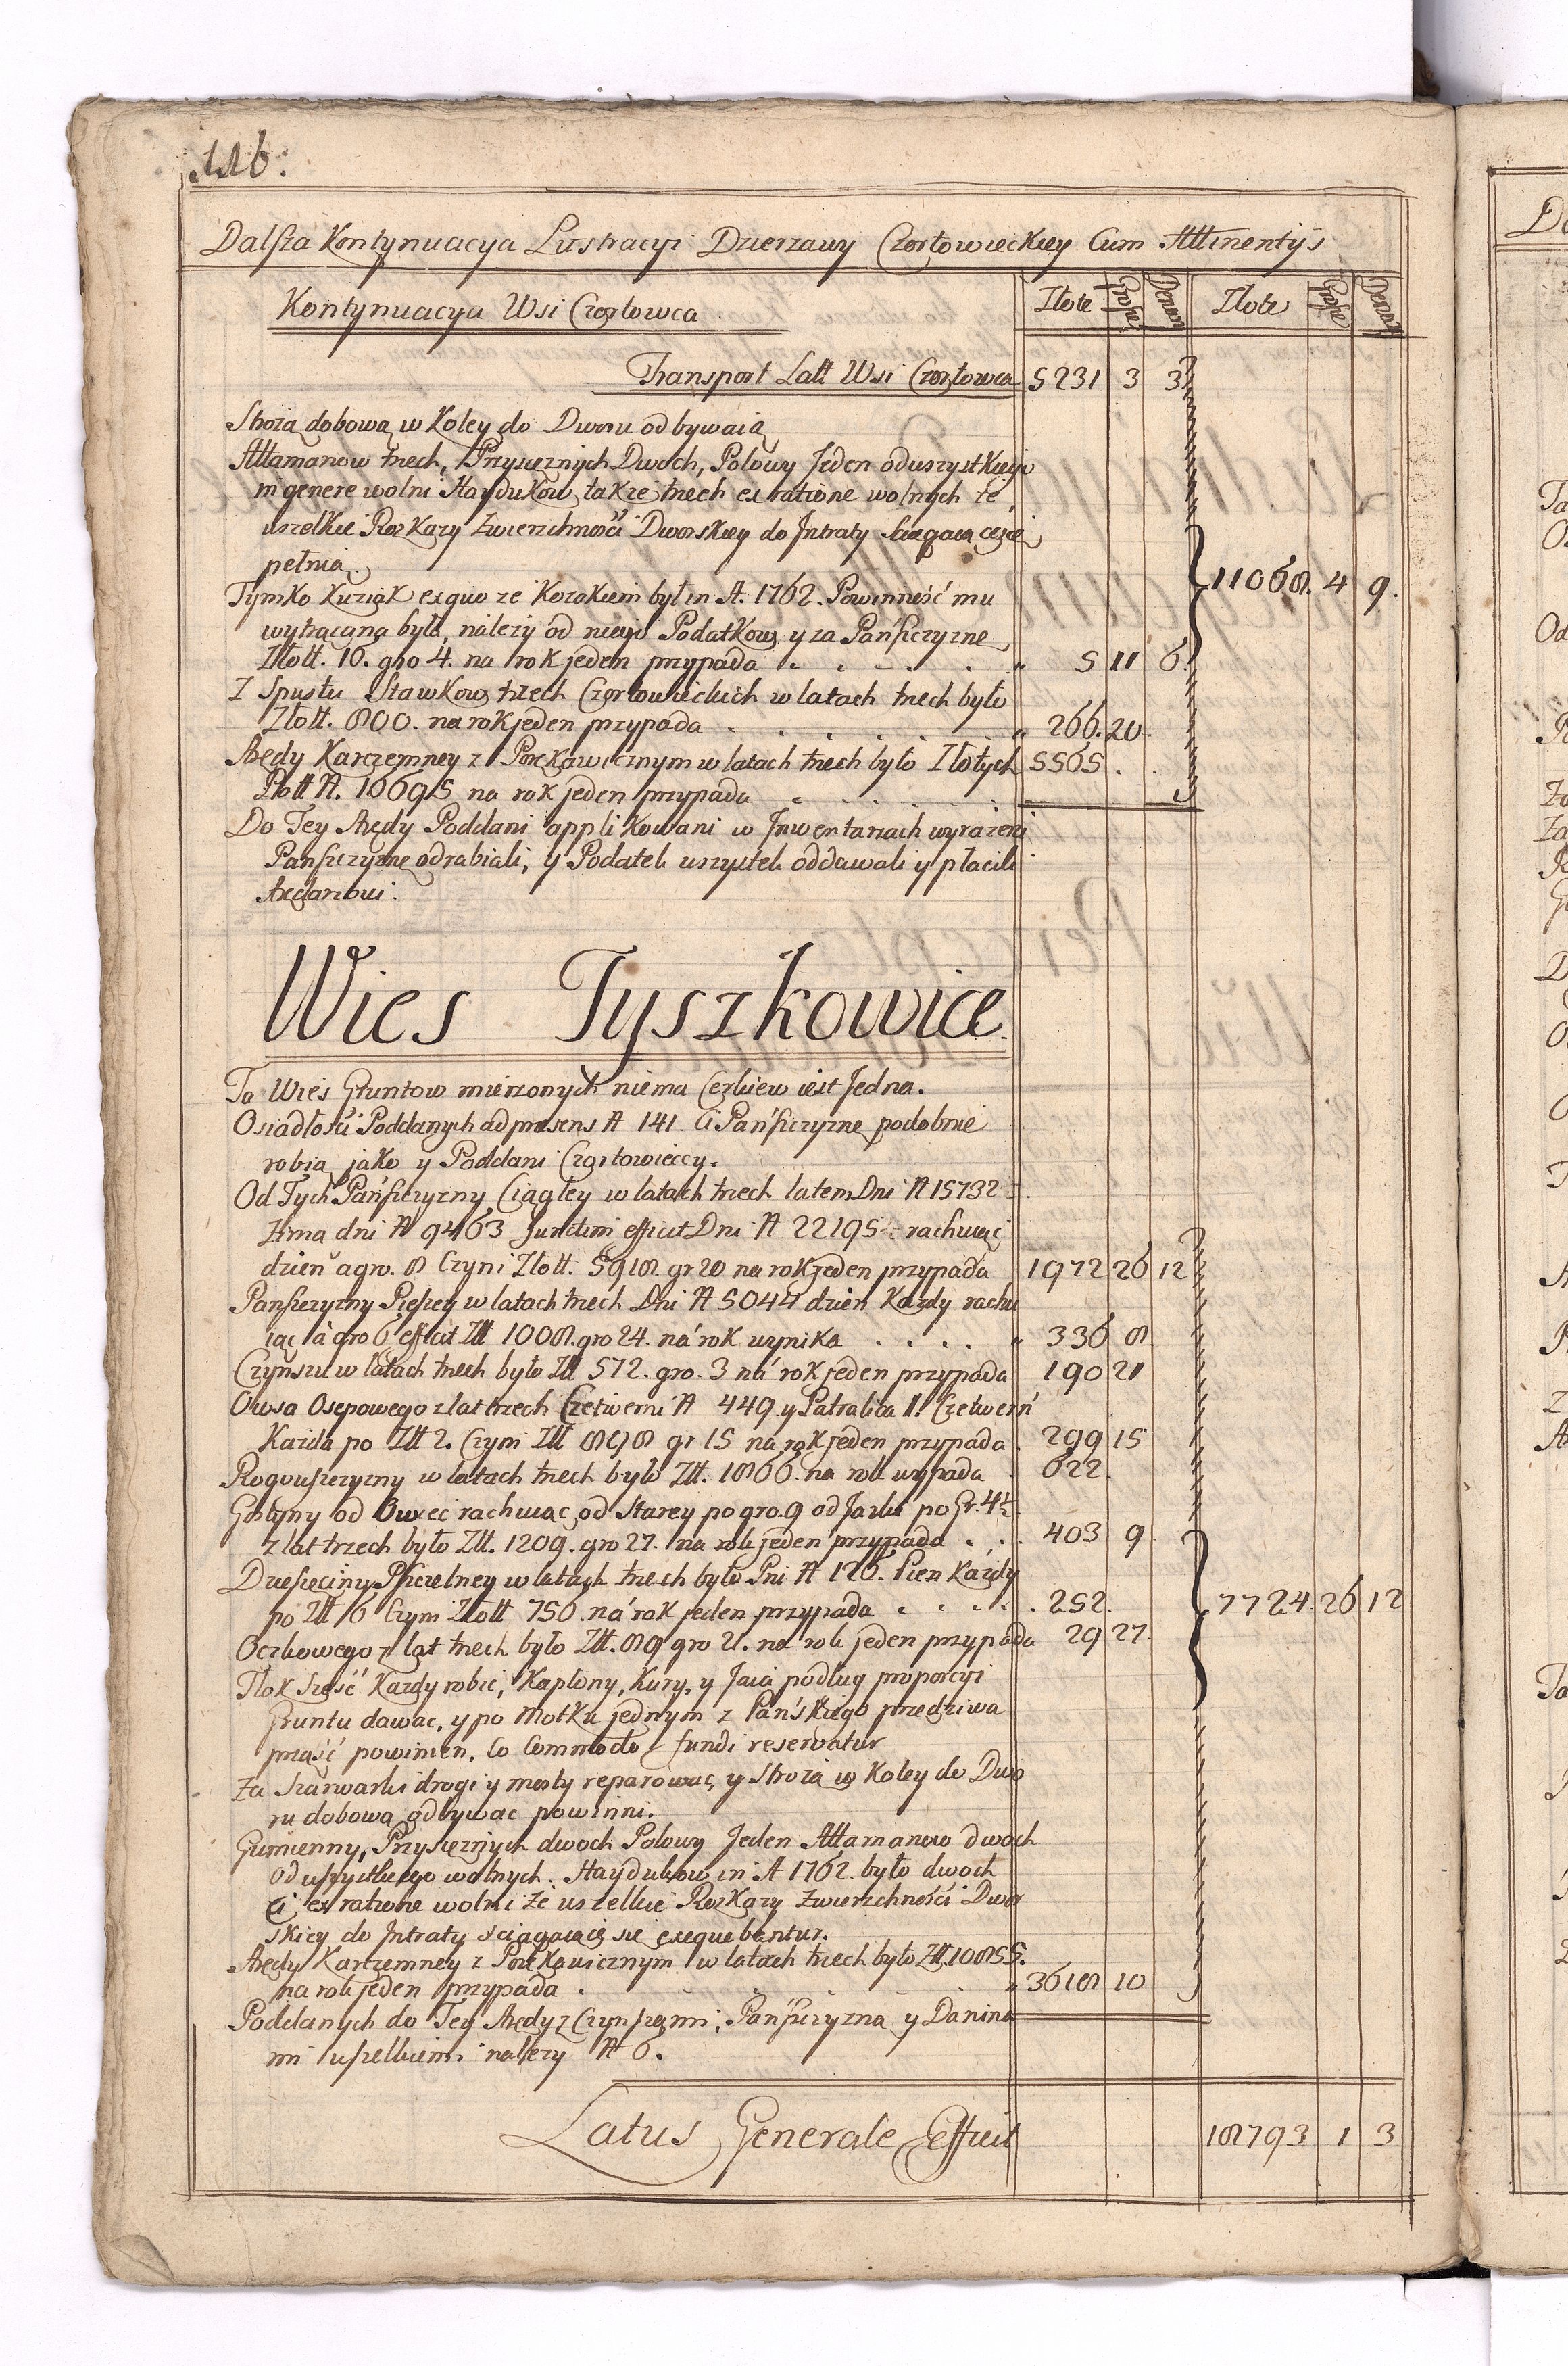 116.
Dalsza Kontynuacya Lustracyi Dzierzawy Czortowieckiey Cum Attinentijs
Kontynuacya Wsi Czortowca Złote Grosze Denary Złote Grosze Denary
Transport Latt Wsi Czortowca 5231 3 3
Strożą dobową w Koley do Dworu odbywaią
Attamanow trzech, Przysięznych Dwoch, Polowy Jeden od wszystkiego
in genere wolni Haydukow także trzech ex ratione wolnych że
wszelkie Rozkazy Zwierzchności Dworskiey do Intraty ściągaiące się
pełnią. 11068. 4 9.
Tymko Kuziak ex quo ze Kozakiem był in A. 1762. Powinność mu
wytrącaną była, należy od niego Podatkow y za Pańszczyznę
Złott. 16. gro 4. na rok jeden przypada 5 11 6.
Z Spustu Stawkow trzech Czortowieckich w latach trzech było
Złott. 800. na rok jeden przypada 266. 20.
Arędy Karczemney z Porękawicznym w latach trzech było Złotych 5565
Złott N. 16695 na rok jeden przypada
Do Tey Arędy Poddani applikowani w Inwentarzach wyrazeni
Pańszczyznę odrabiali, y Podatek wszystek oddawali y płacili
Arędarzowi.
Wies Tyszkowice
Ta Wieś Gruntow mierzonych niema Cerkiew iest Jedna.
Osiadłości Poddanych ad præsens N 141. Ci Pańszczyznę podobnie
robią jako y Poddani Czortowieccy.
Od Tych Pańszczyzny Ciągłey w latach trzech latem Dni N 15732
Zimą dni N 9463 Junctim efficit Dni N 22195 rachuiąc
dzień a gro. 8 Czyni Złott. 5918. gr 20 na rok jeden przypada 1972 26 12
Pańszczyzny Pieszey w latach trzech Dni N 5044 dzień Kazdy rachu
iąc à gro 6 efficit Złł 1008. gro 24. na rok wynika 336 8
Czynszu w latach trzech było Złł 572. gro. 3 na rok jeden przypada 190 21
Owsa Osepowego z lat trzech Czetwerni N 449 y Patralica 1. Czetwerń
Kazda po Złł 2. Czyni Złł 898 gr 15 na rok jeden przypada 299 15
Rogowszczyzny w latach trzech było Złł. 1866. na rok wypada 622
Gostyny od Owiec rachuiąc od Starey po gro. 9 od Jarki po Gr. 4½
z lat trzech było Złł. 1209. gro 27. na rok jeden przypada 403 9
Dziesięciny Pszczelney w latach trzech było Pni N 126. Pień Kazdy
po Złł 6 Czyni Złott 756. na rok jeden przypada 252. 7724. 26 12
Oczkowego z lat trzech było Złł. 89 gro 21. na rok jeden przypada 29 27
Tłok Sześć Kazdy robić, Kapłony, Kury, y Jaia podług proporcyi
Gruntu dawac, y po Motku jednym z Pańskiego przędziwa
prząść powinien, Co Commodo fundi reservatur
Za Szarwarki drogi y mosty reparować, y Stroza w Koley do Dwo
ru dobową odbywac powinni.
Gumienny, Przysięznych dwoch Polowy Jeden Attamanow dwoch
Od wszystkiego wolnych. Haydukow in A 1762. było dwoch
Ci ex ratione wolni że wszelkie Rozkazy Zwierzchności Dwor
skiey do Intraty sciągaiące się exequebantur.
Arędy Karczemney z Porękawicznym w latach trzech było Złł. 10855.
na rok jeden przypada 3618 10
Poddanych do Tey Arędy z Czynszami, Pańszczyzną y Danina
mi wszelkiemi nalezy N 6.
Latus Generale Efficit 18793 1 3